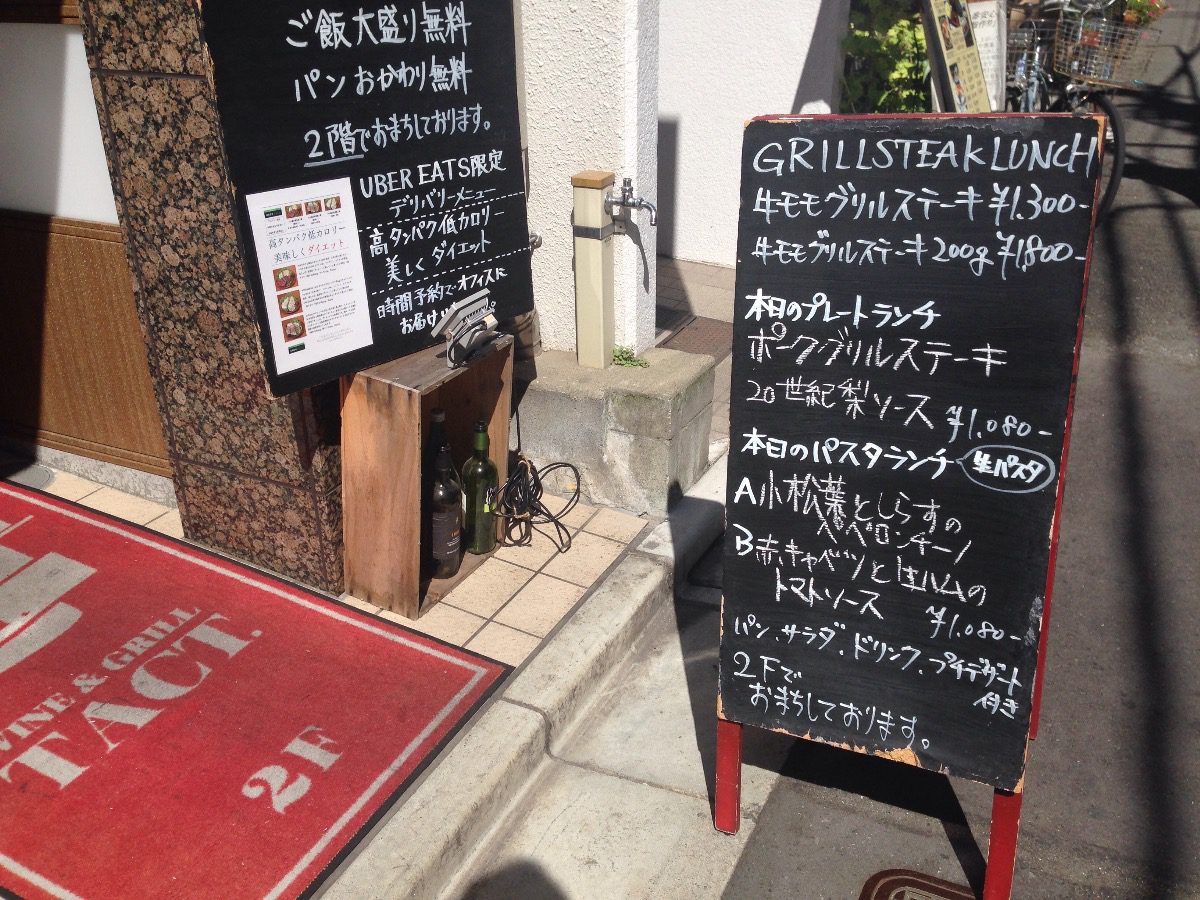 ご飯大盛り無料
パンおかわり無料
2階でおまちしております。
UBER EATS限定
デリバリーメニュー
高タンパク低カロリー
美しくダイエット
時間予約でオフィスに
お届け
高タンパク低カロリー
美味しくダイエット
WINE & GRILL
TACT.
2F
GRILLSTEAKLUNCH
牛モモグリルステーキ ¥1.300-
牛モモグリルステーキ200g ¥1,800-
本日のプレートランチ
ポークグリルステーキ
20世紀梨ソース
¥1.080-
本日のパスタランチ 生パスタ
A小松葉としらすの
ペペロンチーノ
B赤キャベツと生ハムの
トマトソース
¥1.080-
パン、サラダ、ドリンク、プチデザート
付き
2Fで
おまちしております。